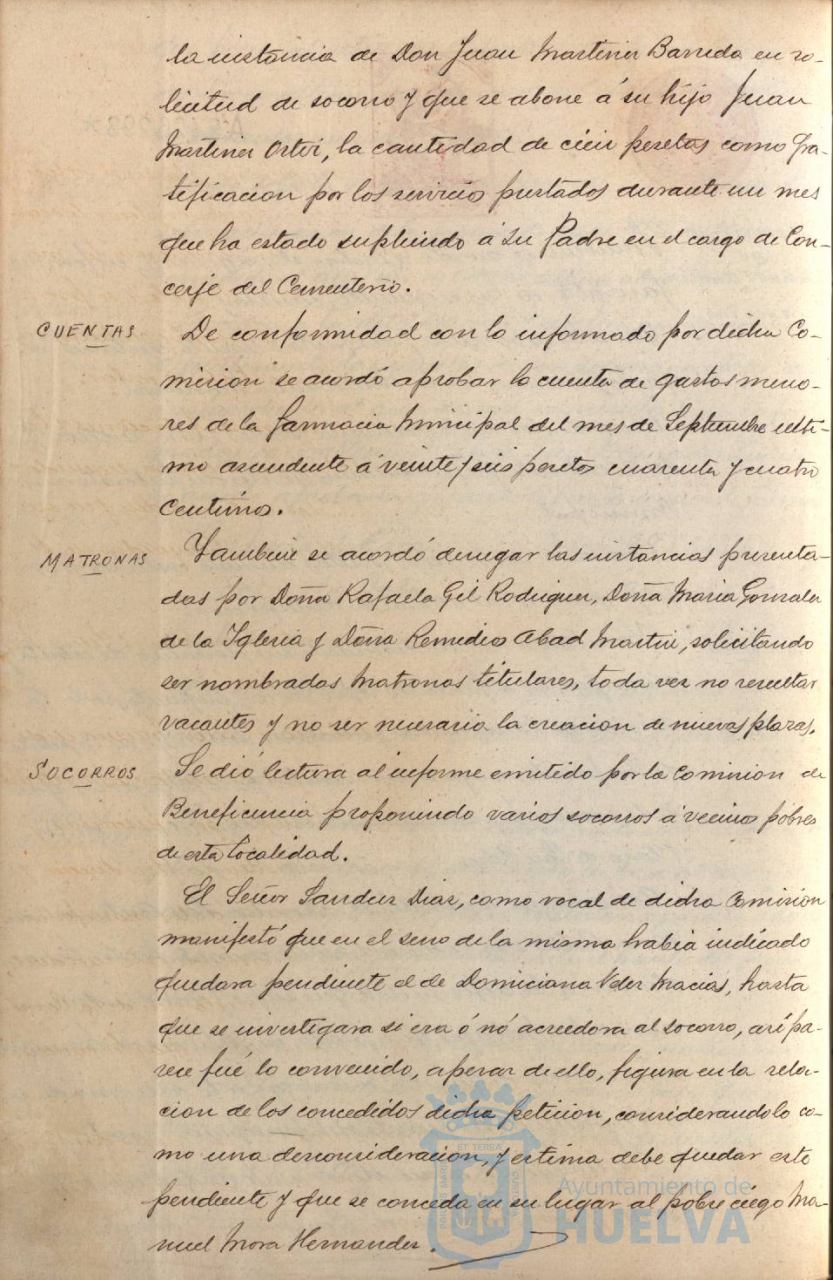 la instancia de Don Juan Martinez Barreda en so-
licitud de socorro y que se abone á su hijo Juan
Martinez Ortiz, la cantidad de cien pesetas como gra-
tificacion por los servicios prestados durante un mes
que ha estado supliendo á su Padre en el cargo de Con-
cerje del Cementerio.
CUENTAS De conformidad con lo informado por dicha Co-
mision se acordó aprobar la cuenta de gastos meno-
res de la farmacia Municipal del mes de Septiembre ulti-
mo ascendente á veinte y seis pesetas cuarenta y cuatro
centimos.
MATRONAS Tambien se acordó denegar las instancias presenta-
das por Doña Rafaela Gil Rodriguez, Doña Maria Gonzalez
de la Iglesia y Doña Remedios Abad Martin, solicitando
ser nombradas Matronas titulares, toda vez no resultar
vacantes y no ser necesario la creacion de nuevas plazas.
SOCORROS Se dió lectura al informe emitido por la Comision de
Beneficencia proponiendo varios socorros á vecinos pobres
de esta localidad.
El Señor Sanchez Diaz, como vocal de dicha Comision
manifestó que en el seno de la misma habia indicado
quedara pendiente el de Domiciana Velez Macias, hasta
que se investigara si era ó nó acreedora al socorro, asi pa-
rece fué lo convenido, apesar de ello, figura en la rela-
cion de los concedidos dicha peticion, considerandolo co-
mo una desconsideracion, y estima debe quedar este
pendiente y que se conceda en su lugar al pobre ciego Ma-
nuel Mora Hernandez.
Ayuntamiento de
HUELVA